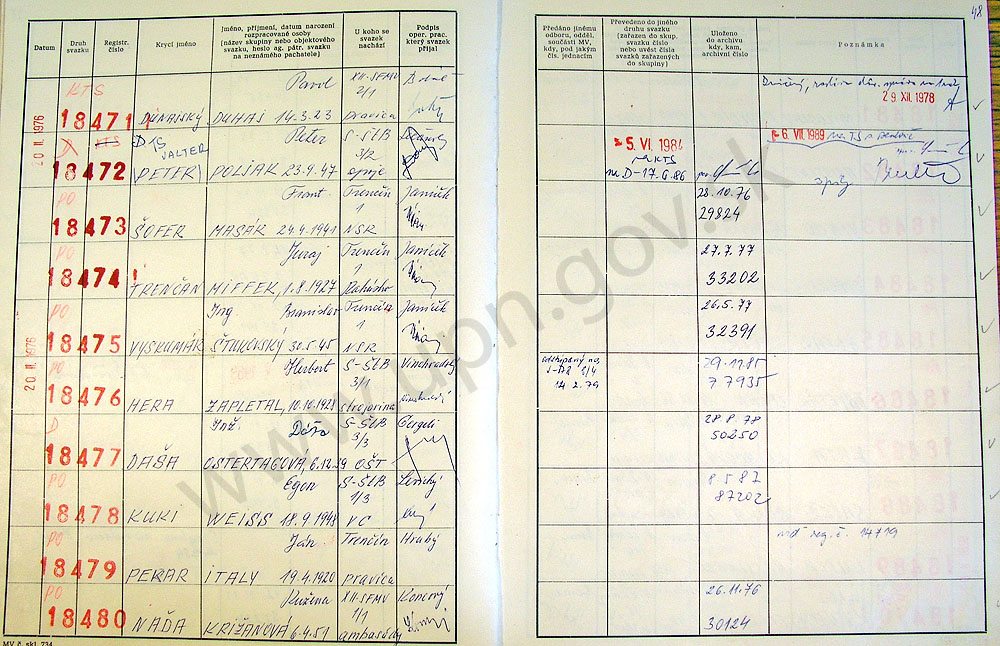 48
Datum
Druh svazku
Registr. číslo
Krycí jméno
Jméno, příjmení, datum narození rozpracované osoby
(název skupiny nebo objektového svazku, heslo ag. pátr. svazku na neznámého pachatele)
U koho se svazek nachází
Podpis oper. prac. který svazek přijal
Předáno jinému odboru, odděl, součásti MV, kdy, pod jakým čís. jednacím
Převedeno do jiného druhu svazku (zařazen do skup. svazku číslo nebo uvést čísla svazků zařazených do skupiny)
Uloženo do archivu kdy, kam, archivní číslo
Poznámka
20 II. 1976
KTS
18471
DUNAJSKÝ
Pavol
DUHAS 14.3.23
XII-SFMV
2/1
pravica
29. XII. 1978
D
KTS
18472
DTS
VALTER
(PETER)
Peter
POLJAK 23.9.47
S-ŠtB
3/2
5. VI. 1984
na KTS
na D-17.6.86
6. VII. 1989
PO
18473
ŠOFER
Frant.
MASÁK 24.9.1941
Trenčín
1
NSR
Janičík
28.10.76
29824
PO
18474
TRENČAN
Juraj
MIFFEK, 1.8.1927
Trenčín
1
Rakúsko
Janičík
27.7.77
33202
20 II. 1976
PO
18475
VÝSKUMÁR
Ing Branislav
30.5.45
Trenčín
1
NSR
Janičík
26.5.77
32391
PO
18476
HERA
Herbert
ZAPLETAL, 10.10.1928
S-ŠtB
3/1
strojárina
Vinohradský
14.2.79
77935
D
18477
DAŠA
Inž. Dáša
OSTERTAGOVÁ, 6.12.29
S-ŠtB
3/3
OŠT
Gergeli
28.8.78
50250
PO
18478
KUKI
Egon
WEISS 18.9.1948
S-ŠtB
1/3
VC
8.5.87
87202
PO
18479
PEKAR
Ján
ITALY 19.4.1920
Trenčín
pravica
Hrabý
reg. č. 14719
PO
18480
NAĎA
Ružena
KRIŽANOVÁ 6.4.51
XII-SFMV
1/1
ambasády
Koncový
26.11.76
30124
MV č. skl. 734
www.upn.gov.sk